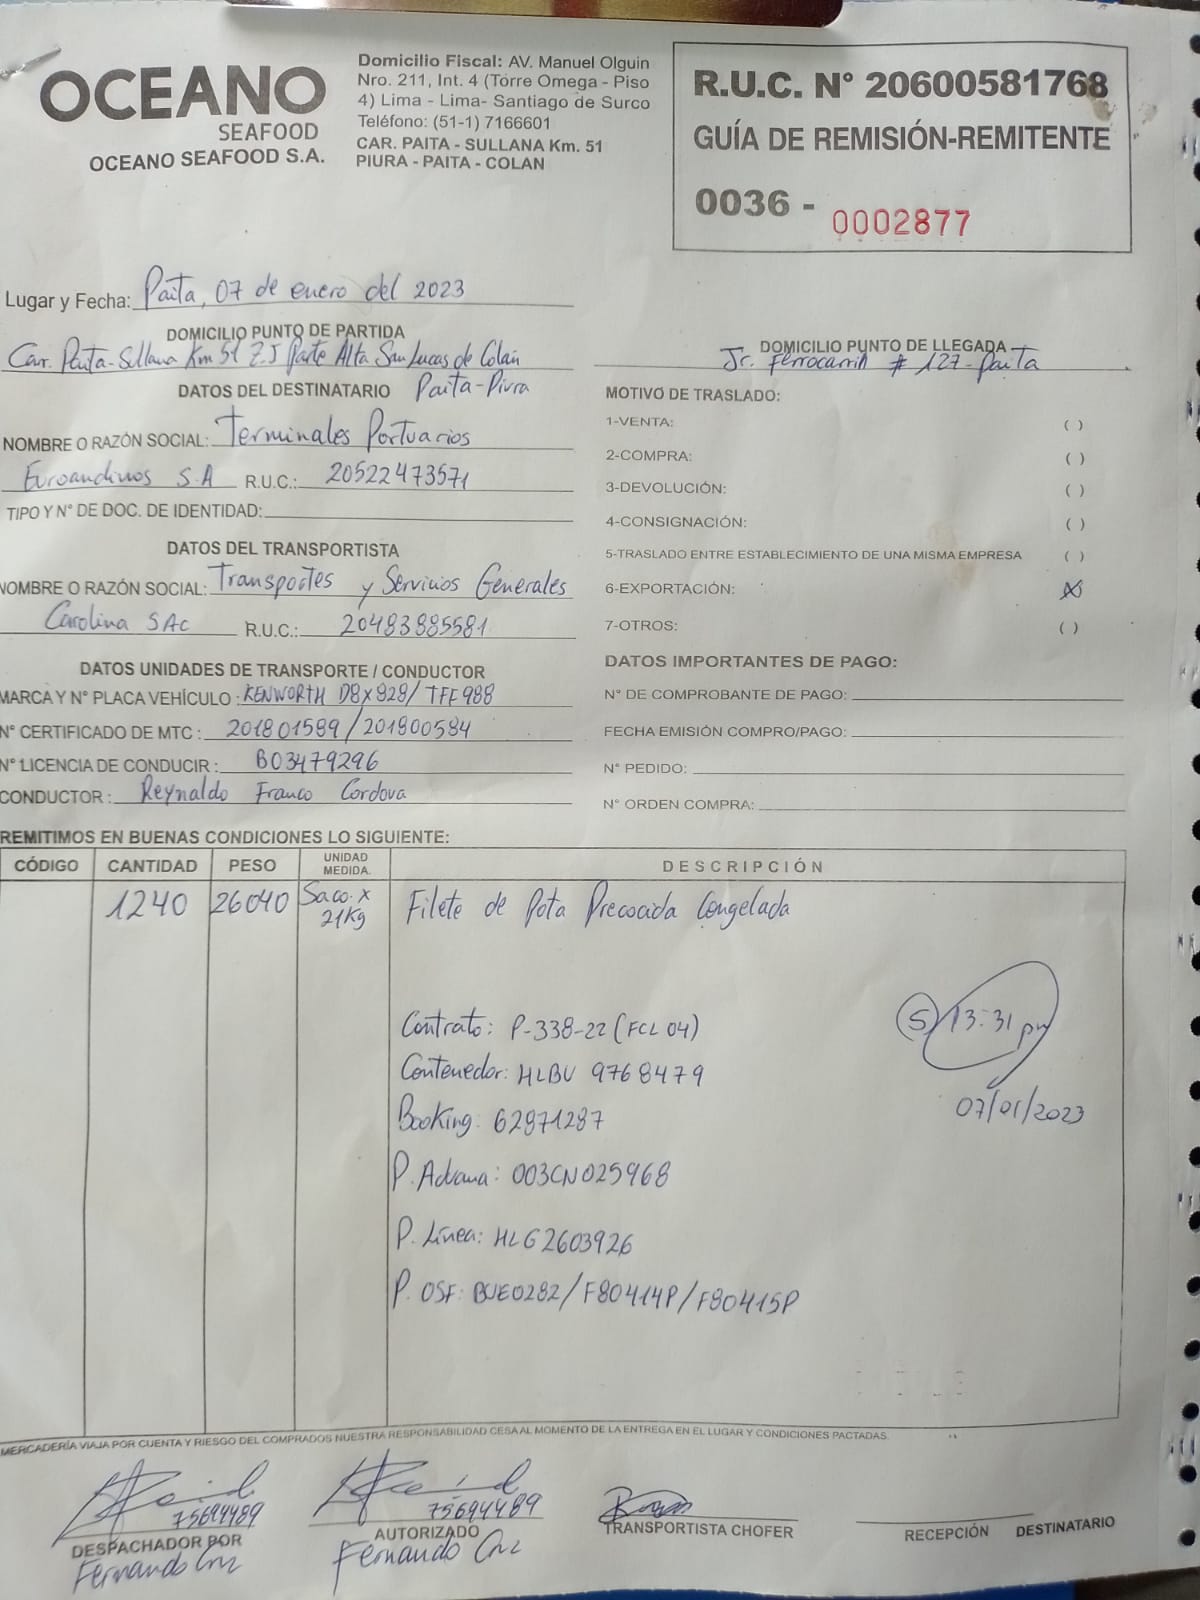 OCEANO
SEAFOOD
OCEANO SEAFOOD S.A.
Domicilio Fiscal: AV. Manuel Olguin
Nro. 211, Int. 4 (Torre Omega - Piso
4) Lima - Lima- Santiago de Surco
Teléfono: (51-1) 7166601
CAR. PAITA - SULLANA Km. 51
PIURA - PAITA - COLAN
R.U.C. N° 20600581768
GUÍA DE REMISIÓN-REMITENTE
0036 - 0002877
Lugar y Fecha: Paita, 07 de enero del 2023
DOMICILIO PUNTO DE PARTIDA
Car. Paita-Sullana Km 51 Z.I Parte Alta San Lucas de Colán
Paita-Piura
DOMICILIO PUNTO DE LLEGADA
Jr. Ferrocarril # 127-Paita
DATOS DEL DESTINATARIO
NOMBRE O RAZÓN SOCIAL: Terminales Portuarios
Euroandinos S.A R.U.C.: 20522473571
TIPO Y N° DE DOC. DE IDENTIDAD:
DATOS DEL TRANSPORTISTA
NOMBRE O RAZÓN SOCIAL: Transportes y Servicios Generales
Carolina SAC R.U.C.: 20483885581
DATOS UNIDADES DE TRANSPORTE / CONDUCTOR
MARCA Y N° PLACA VEHÍCULO : KENWORTH D8X828/ TFF988
N° CERTIFICADO DE MTC : 201801589/201800584
N° LICENCIA DE CONDUCIR : B03479296
CONDUCTOR : Reynaldo Franco Cordova
MOTIVO DE TRASLADO:
1-VENTA: ( )
2-COMPRA: ( )
3-DEVOLUCIÓN: ( )
4-CONSIGNACIÓN: ( )
5-TRASLADO ENTRE ESTABLECIMIENTO DE UNA MISMA EMPRESA ( )
6-EXPORTACIÓN: (X)
7-OTROS: ( )
DATOS IMPORTANTES DE PAGO:
N° DE COMPROBANTE DE PAGO:
FECHA EMISIÓN COMPRO/PAGO:
N° PEDIDO:
N° ORDEN COMPRA:
REMITIMOS EN BUENAS CONDICIONES LO SIGUIENTE:
CÓDIGO CANTIDAD PESO UNIDAD MEDIDA. DESCRIPCIÓN
1240 26040 Saco x 21Kg Filete de Pota Precocida Congelada
Contrato: P-338-22 (FCL 04)
Contenedor: HLBU 9768479
Booking: 62871287
P. Aduana: 003CN025968
P. Línea: HLG2603926
P. OSF: BUE0282/F80414P/F80415P
S 13:31 pm
07/01/2023
MERCADERÍA VIAJA POR CUENTA Y RIESGO DEL COMPRADOS NUESTRA RESPONSABILIDAD CESA AL MOMENTO DE LA ENTREGA EN EL LUGAR Y CONDICIONES PACTADAS.
75694489
DESPACHADOR POR
Fernando Cruz
75694489
AUTORIZADO
Fernando Cruz
TRANSPORTISTA CHOFER
RECEPCIÓN DESTINATARIO